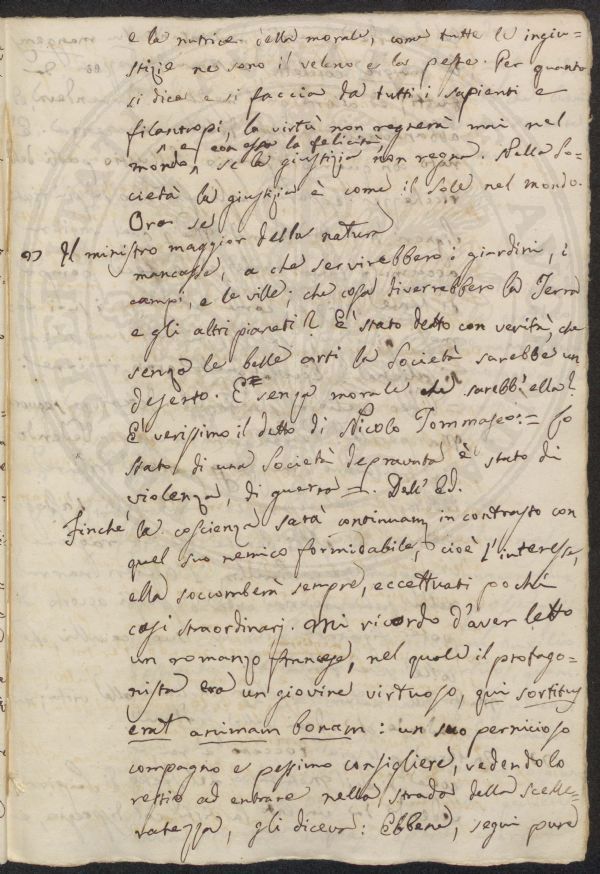 e la nutrice della morale, come tutte le ingiu=
stizie ne sono il veleno e la peste. Per quanto
si dica e si faccia da tutti i sapienti e
filantropi, la virtù non regnerà mai nel
^ e con essa la felicità,
mondo, se la giustizia non regna. Nella So=
cietà la giustizia è come il sole nel mondo.
Ora se
Il ministro maggior della natura
mancasse, a che servirebbero i giardini, i
campi, e le ville, che cosa diverrebbero la Terra
e gli altri pianeti? E' stato detto con verità, che
senza le belle arti la Società sarebbe un
deserto. E senza morale che sarebb'ella?
E' verissimo il detto di Nicolo Tommaseo: = Lo
stato di una Società depravata è stato di
violenza, di guerra =. Dell' Ed.
Finché la coscienza sarà continuam in contrasto con
quel suo nemico formidabile, cioè l'interesse,
ella soccomberà sempre, eccettuati pochi
casi straordinarj. Mi ricordo d'aver letto
un romanzo francese, nel quale il protago=
nista era un giovine virtuoso, qui sortitus
erat animam bonam: un suo pernicioso
compagno e pessimo consigliere, vedendolo
restio ad entrare nella strada della scelle=
ratezza, gli diceva: Ebbene, segui pure